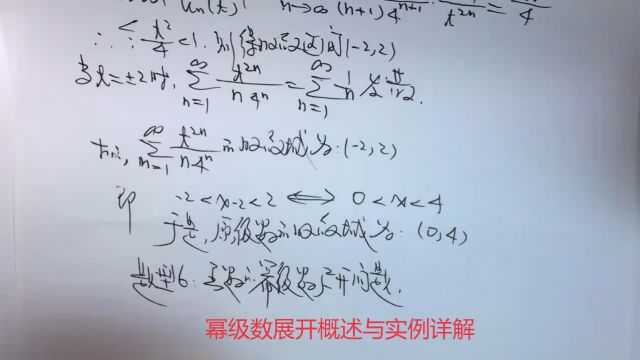 n→∞ (n+1)4^{n+1} · t^{2n} = 4
∴ t²/4 <1. 则得收敛区间(-2,2)
当t=±2时, ∑_{n=1}^{∞} t^{2n}/(n4^n) = ∑_{n=1}^{∞} 1/n 发散.
故, ∑_{n=1}^{∞} t^{2n}/(n4^n) 的收敛域为:(-2,2)
即 -2<x-2<2 ⟺ 0<x<4
于是,原级数的收敛域为:(0,4)
题型6:函数的幂级数展开问题.
幂级数展开概述与实例详解